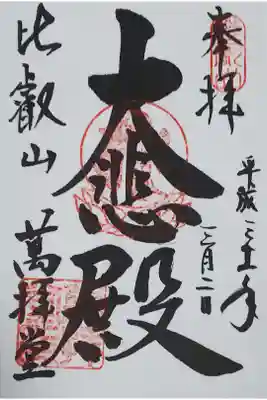 奉拝
平成三十一年
三月二日
大悲殿
比叡山 萬拝堂